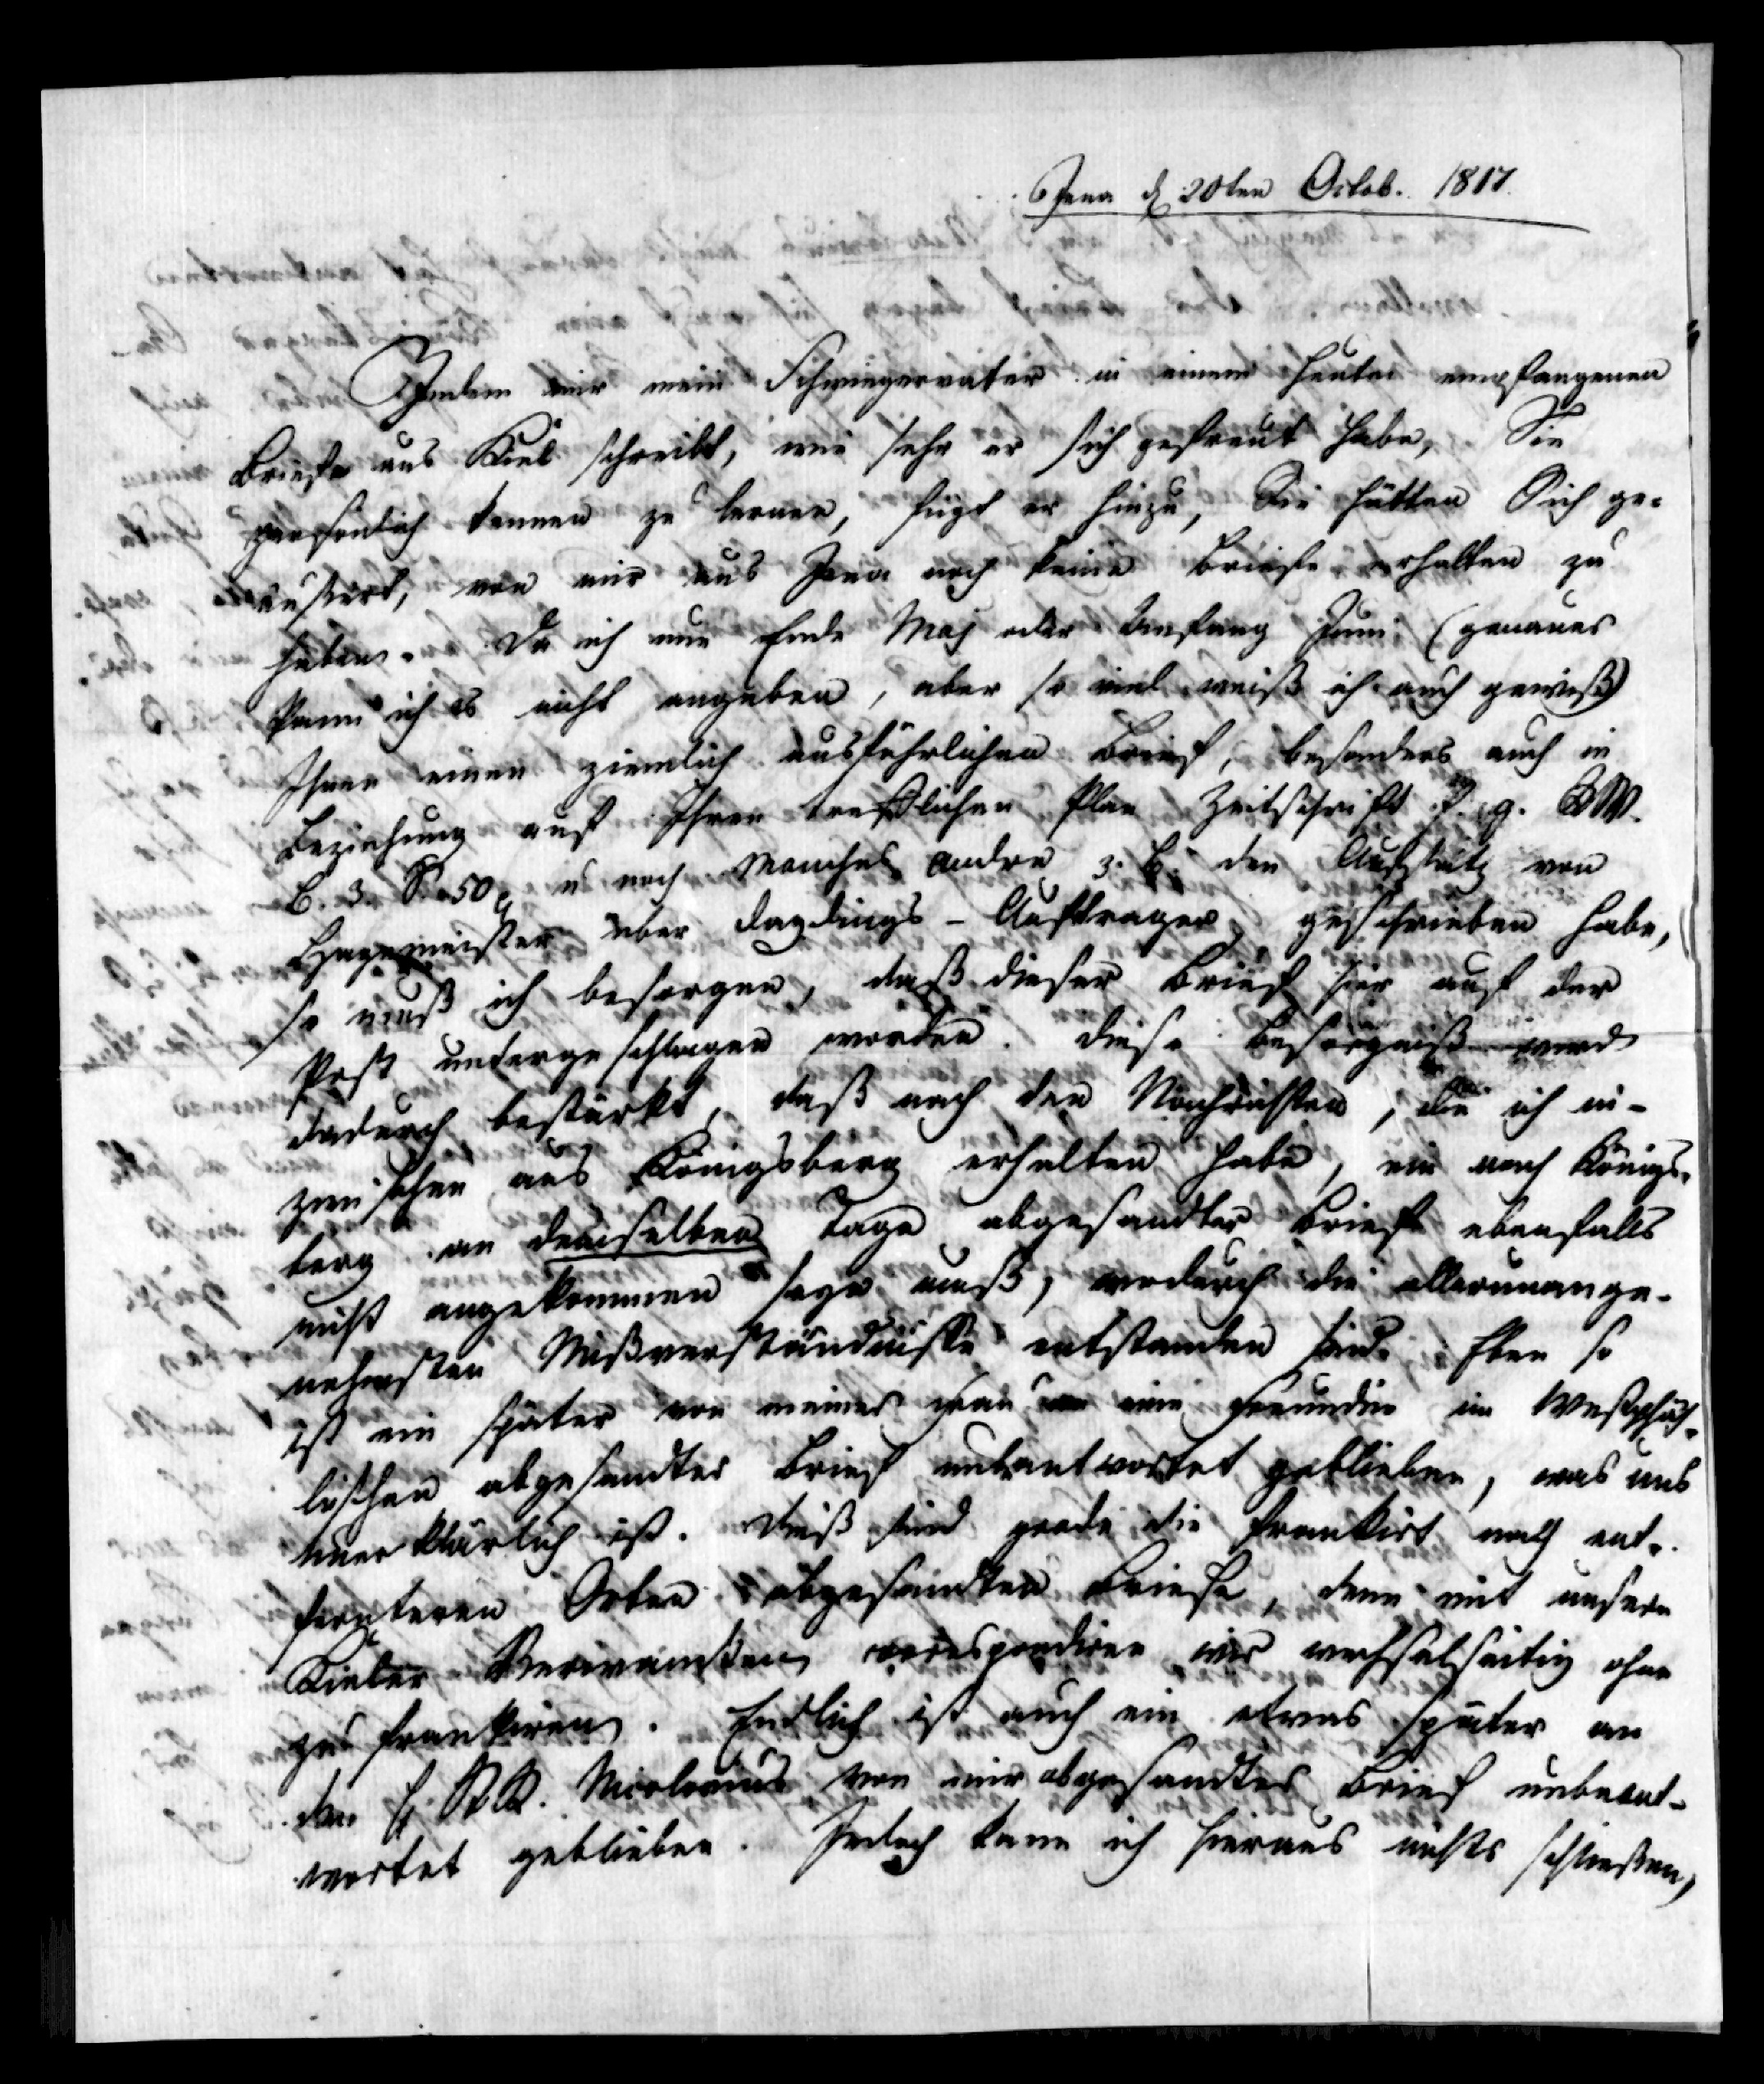 Jena d 20ten Octob. 1817.
Indem mir mein Schwiegervater in einem heute empfangenen
Briefe aus Kiel schreibt, wie sehr er sich gefreut habe, Sie
persönlich kennen zu lernen, fügt er hinzu, Sie hätten Sich ge-
äussert, von mir aus Jena noch keine Briefe erhalten zu
haben. Da ich nun Ende Maj oder Anfang Juni (genauer
kann ich es nicht angeben, aber so viel weiß ich auch gewiß)
Ihnen einen ziemlich ausführlichen Brief, besonders auch in
Beziehung auf Ihren trefflichen Plan Zeitschrift f. g. RW.
B. 3. S. 50 u noch Manches andre z. B. den Aufsatz von
Hagemeister über Dagdings-Auftrager, geschrieben habe,
so muß ich besorgen, daß dieser Brief hier auf der
Post untergeschlagen worden. Diese Besorgniß wird
dadurch bestärkt, daß nach den Nachrichten, die ich in-
zwischen aus Königsberg erhalten habe, ein nach Königs-
berg an demselben Tage abgesandter Brief ebenfalls
nicht angekommen seyn muß, wodurch die allerunange-
nehmsten Mißverständnisse entstanden sind. Eben so
ist ein später von meiner Frau an eine Freundin im Westphäl-
ischen abgesandter Brief unbeantwortet geblieben, was uns
unerklärlich ist. Dieß sind grade die frankirt nach ent-
fernteren Orten abgesandten Briefe, denn mit unsern
Kieler Verwandten correspondiren wir wechselseitig ohne
zu frankiren. Endlich ist auch ein etwas später an
den H. St.R. Nicolovius von mir abgesandter Brief unbeant-
wortet geblieben. Jedoch kann ich hieraus nichts schließen,